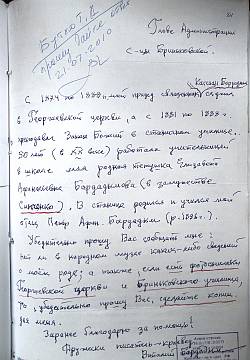 Букто Т.В.
прошу дайте ответ
21.07.2010
Главе Администрации
с-цы Бриньковской.
Кассиан Бардадым
С 1874 по 1888 г. мой прадед священник служил
в Георгиевской церкви, а с 1881 по 1888 г.
преподавал Закон Божий в станичном училище.
30 лет (в XX веке) работала учительницей
в школе моя родная тетушка Елизавет
Архиповна Бардадымова (в замужестве
Синченко). В станице родился и учился мой
отец Петр Арх. Бардадым (р. 1886 г.).
Убедительно прошу Вас сообщить мне:
есть ли в народном музее какие-либо сведения
о моём роде; а также, если есть фотоснимки
Георгиевской церкви и Бриньковского училища,
то, убедительно прошу Вас, сделайте копии
для меня.
Заранее благодарю за помощь!
писатель-краевед
Виталий Бардадым